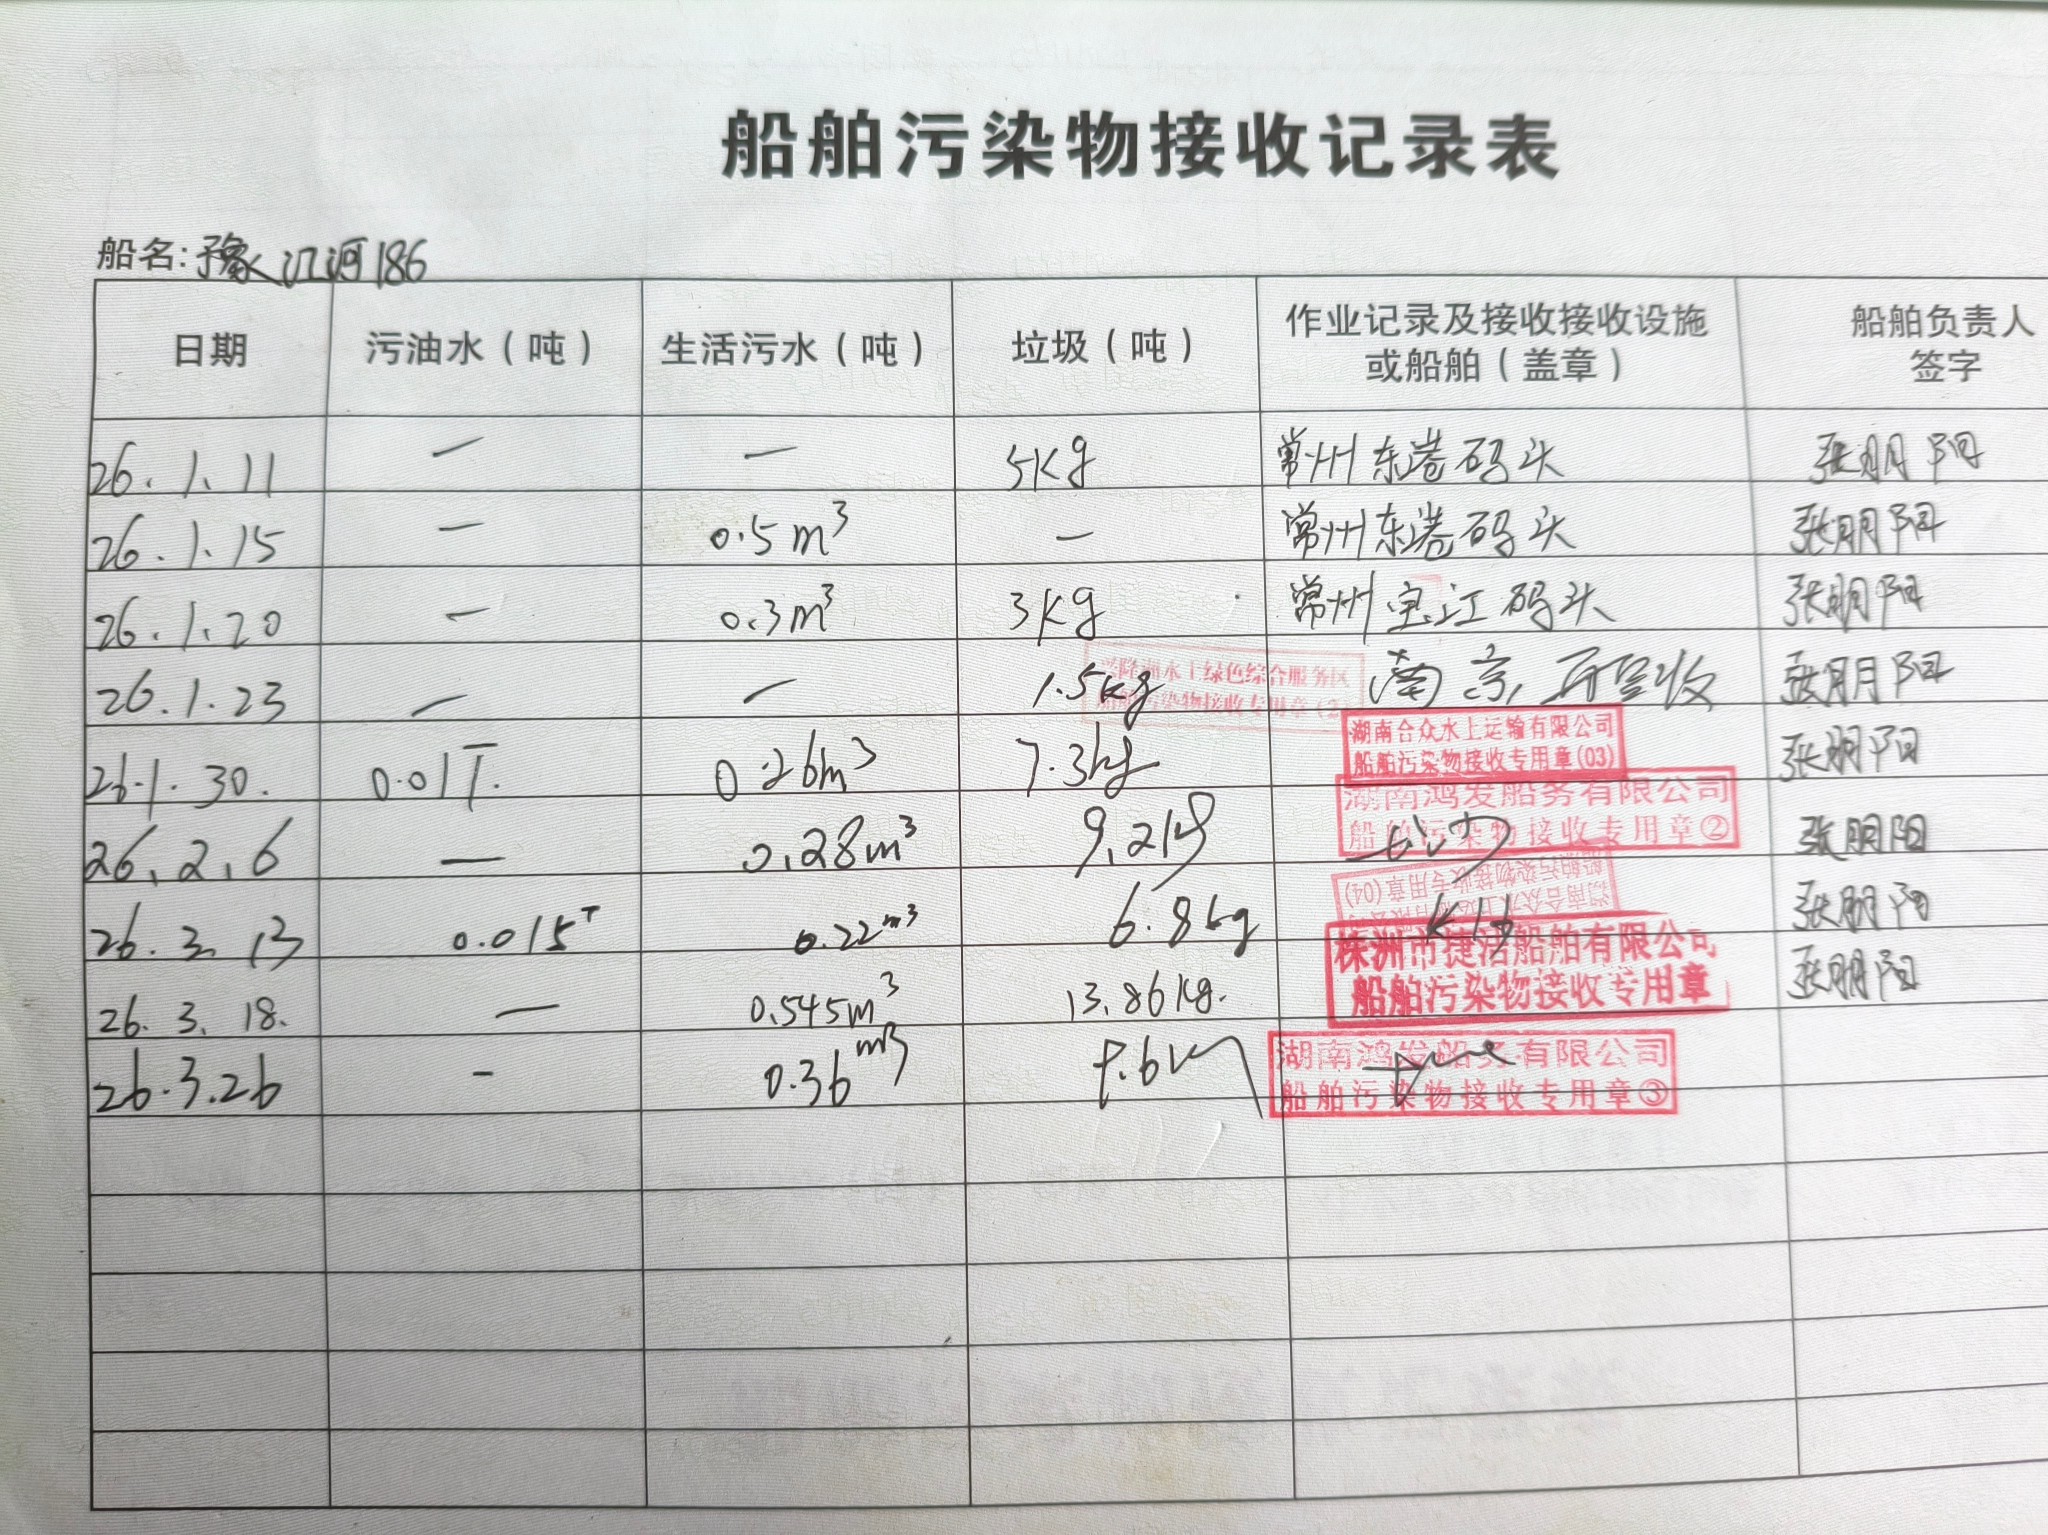 船舶污染物接收记录表
船名:豫江河186
日期 污油水（吨） 生活污水（吨） 垃圾（吨） 作业记录及接收接收设施或船舶（盖章） 船舶负责人签字
26.1.11 — — 5Kg 常州东港码头 张明阳
26.1.15 — 0.5m³ — 常州东港码头 张明阳
26.1.20 — 0.3m³ 3Kg 常州宝江码头 张明阳
26.1.23 — — 1.5kg 南京 张明阳
水上绿色综合服务区
船舶污染物接收专用章
26.1.30. 0.01T. 0.26m³ 7.3kg 张明阳
湖南合众水上运输有限公司
船舶污染物接收专用章(03)
26.2.6 — 0.28m³ 9.2kg 张明阳
湖南鸿发船务有限公司
船舶污染物接收专用章②
26.3.13 0.015T 0.22m³ 6.8kg 张明阳
湖南合众水上运输有限公司
船舶污染物接收专用章(04)
26.3.18. — 0.545m³ 13.86Kg. 张明阳
株洲市捷洁船舶有限公司
船舶污染物接收专用章
26.3.26 - 0.36m³
湖南鸿发船务有限公司
船舶污染物接收专用章③